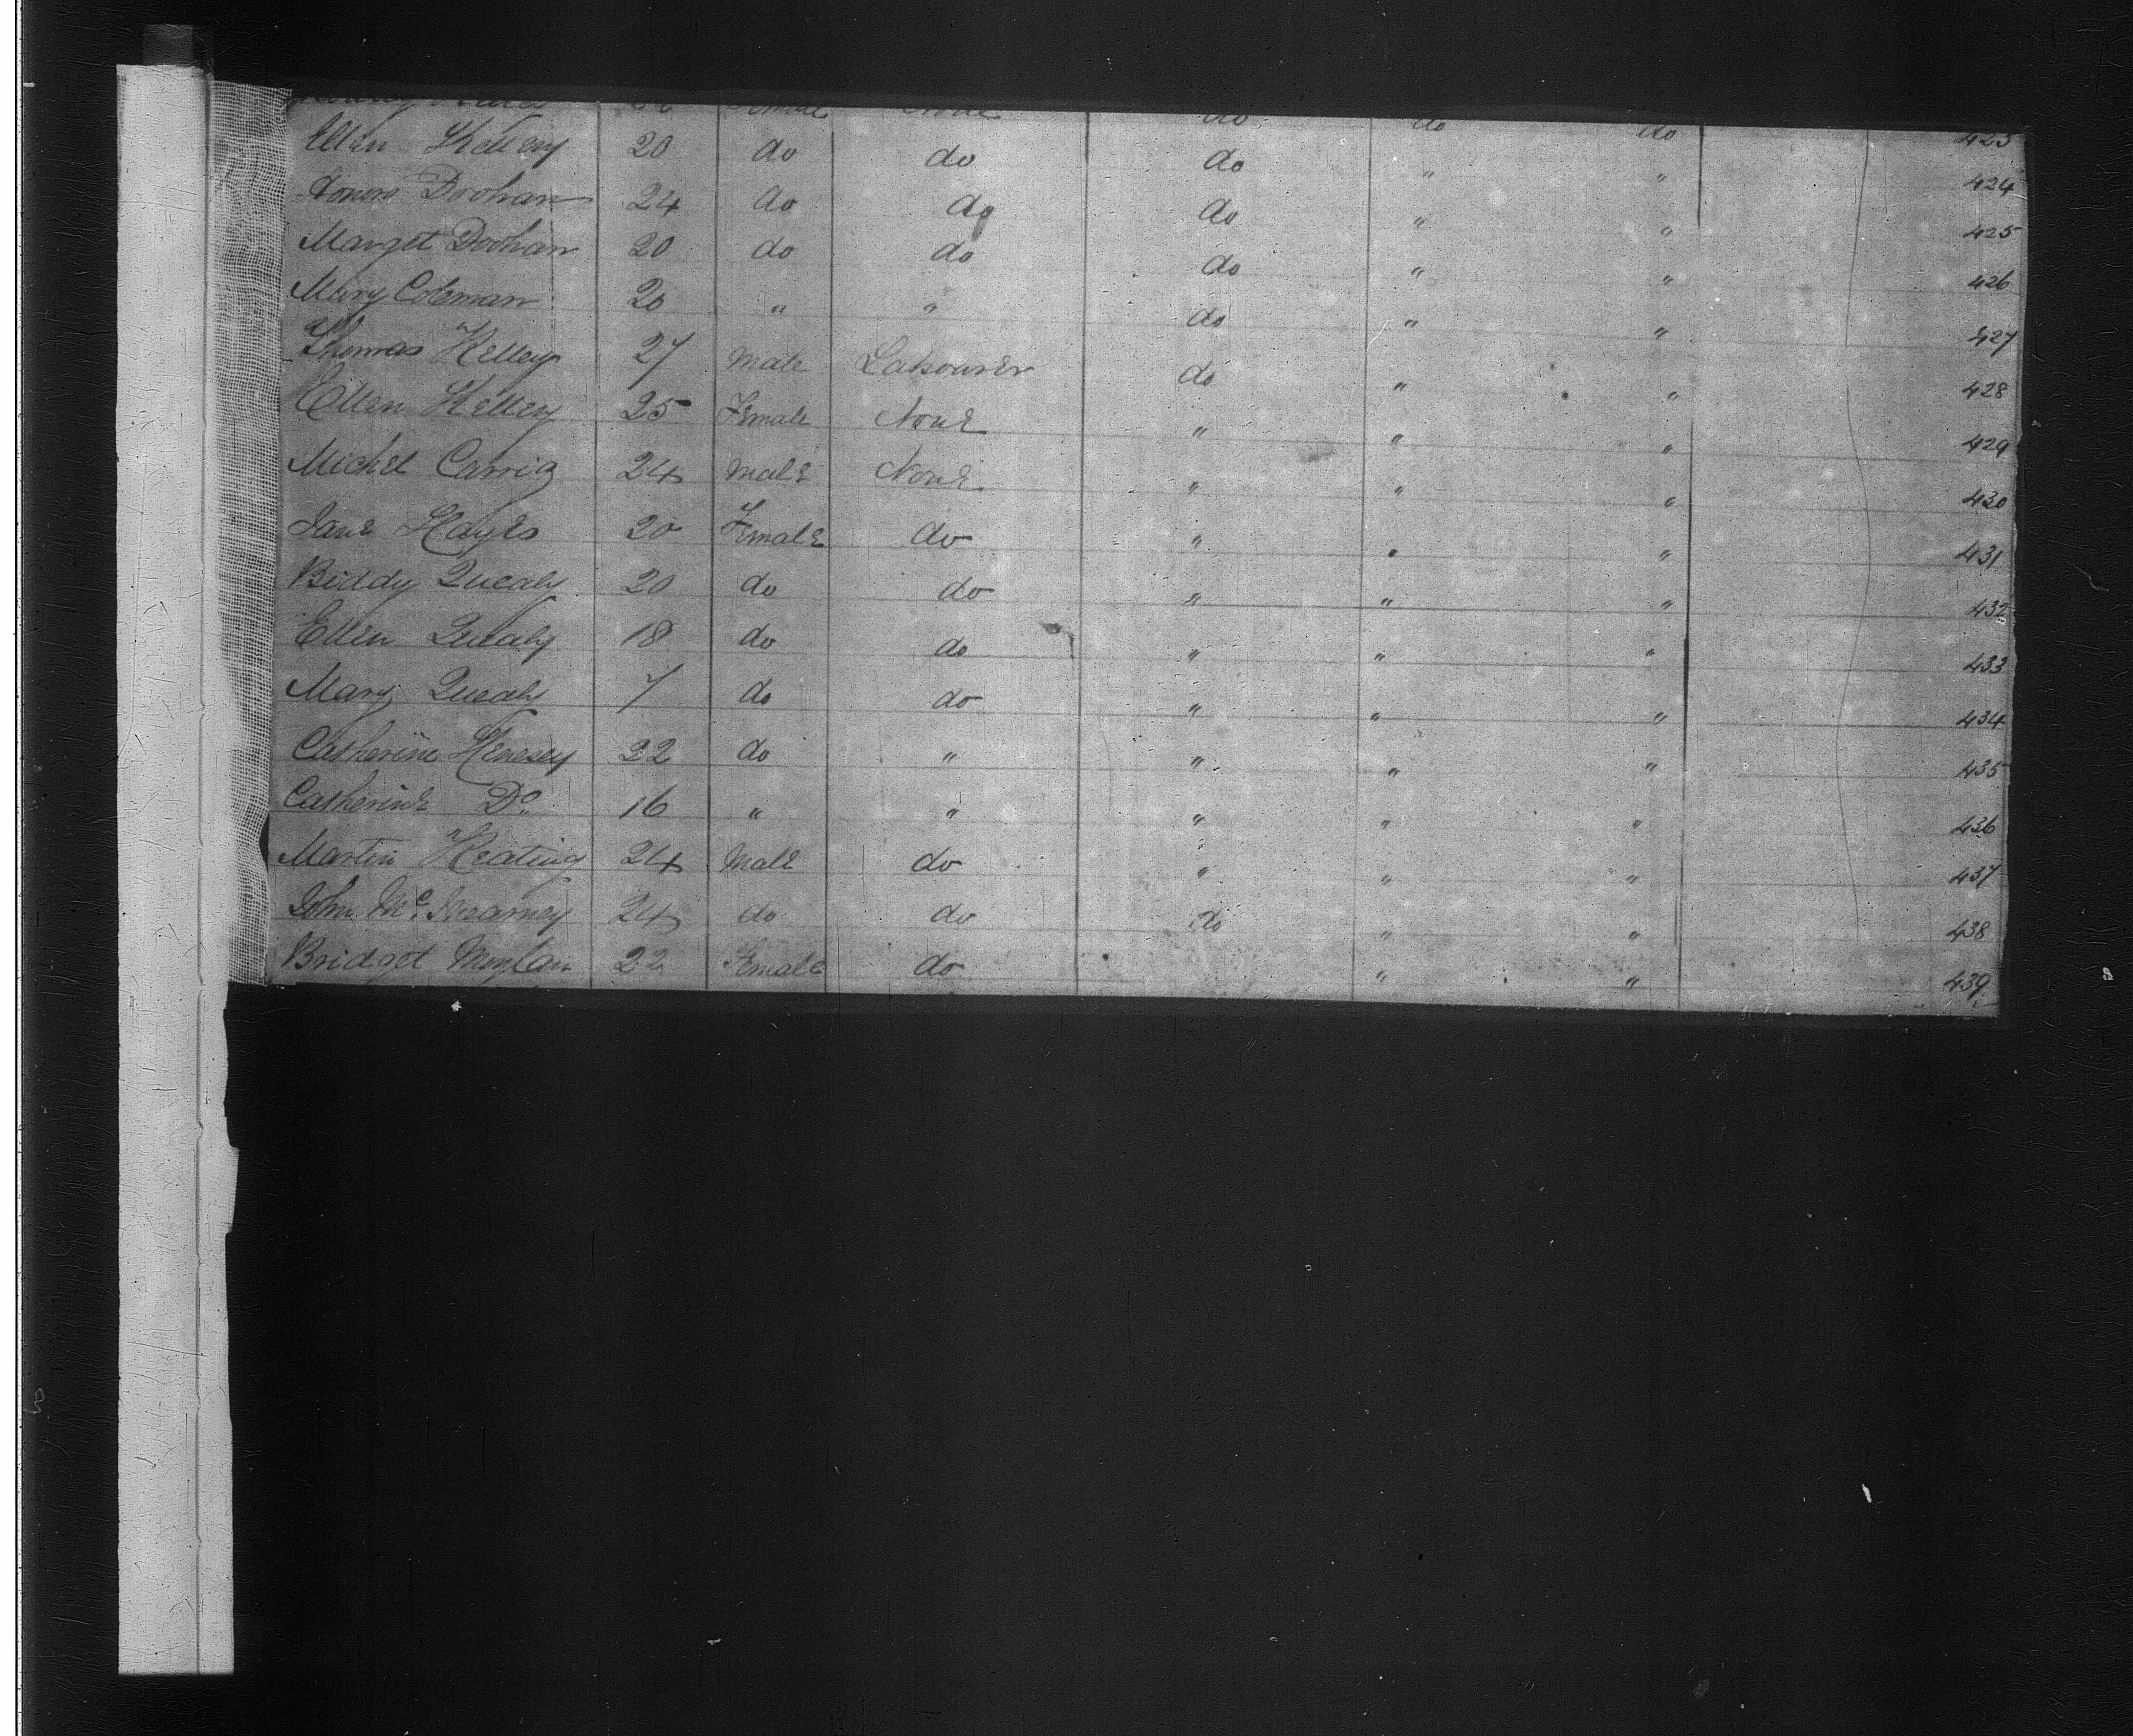 Female do do do 423
Ellen Kelley 20 do do do " " 424
Honora Doohan 24 do do do " " 425
Marget Doohan 20 do do do " " 426
Mary Coleman 20 " " do " " 427
Thomas Kelley 27 Male Labourer do " " 428
Ellen Kelley 25 Female None " " " 429
Michel Carrig 24 Male None " " " 430
Jane Hayes 20 Female do " " " 431
Biddy Quealy 20 do do " " " 432
Ellen Quealy 18 do do " " " 433
Mary Quealy 7 do do " " " 434
Catherine Henesey 22 do " " " " 435
Catherine Do 16 " " " " " 436
Martin Keating 24 Male do " " " 437
John Mc 24 do do do " " 438
Bridget 22 Female do " " 439